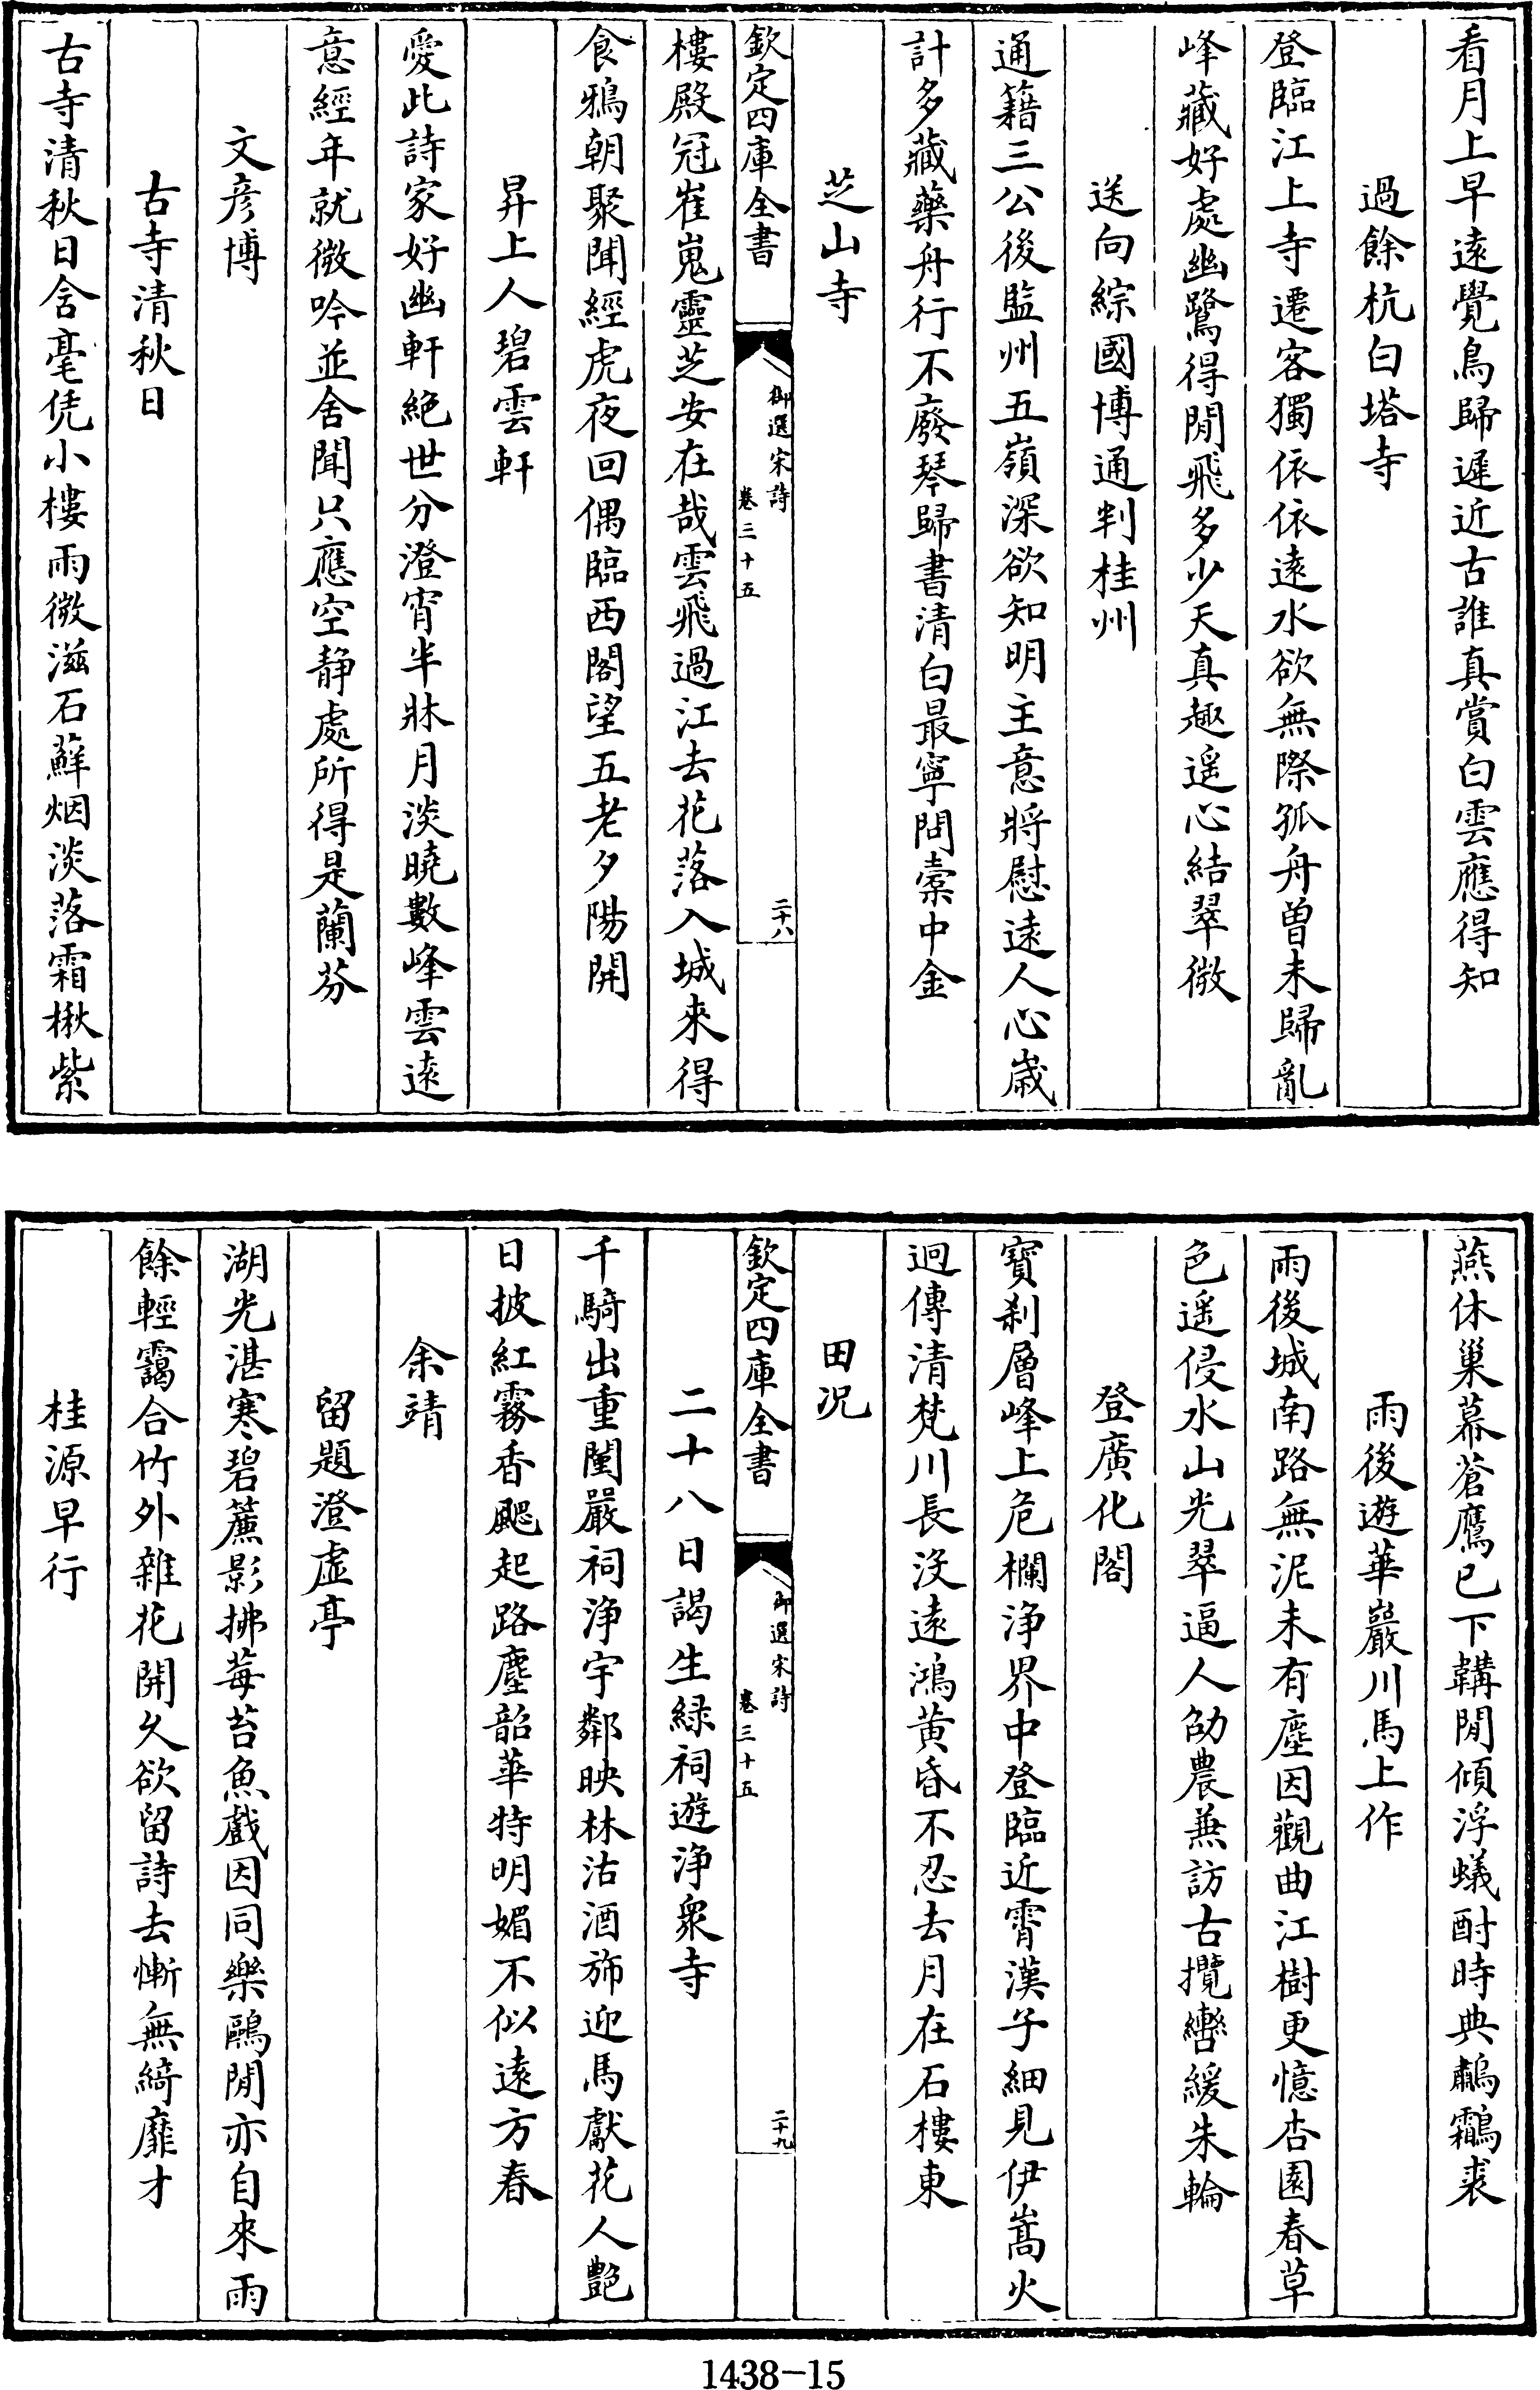 看月上早遠覺鳥歸遲近古誰真賞白雲應得知
過餘杭白塔寺
登臨江上寺遷客獨依依遠水欲無際孤舟曾未歸亂
峰藏好處幽鷺得閒飛多少天真趣遥心結翠微
送向綜國博通判桂州
通籍三公後監州五嶺深欲知明主意將慰遠人心歳
計多藏藥舟行不廢琴歸書清白最寧問橐中金
芝山寺
欽定四庫全書
御選宋詩
卷三十五
二十八
樓殿冠崔嵬靈芝安在哉雲飛過江去花落入城來得
食鴉朝聚聞經虎夜回偶臨西閣望五老夕陽開
昇上人碧雲軒
愛此詩家好幽軒絶世分澄宵半牀月淡曉數峰雲逺
意經年就微吟並舍聞只應空静處所得是蘭芬
文彦博
古寺清秋日
古寺清秋日含毫凭小樓雨微滋石蘚烟淡落霜楸紫
燕休巢幕蒼鷹已下韝閒傾浮蟻酎時典鷫鸘裘
雨後遊華巖川馬上作
雨後城南路無泥未有塵因觀曲江樹更憶杏園春草
色遥侵水山光翠逼人劭農兼訪古攬轡緩朱輪
登廣化閣
寳刹層峰上危欄浄界中登臨近霄漢子細見伊嵩火
迴傳清梵川長没遠鴻黄昏不忍去月在石樓東
田况
欽定四庫全書
御選宋詩
卷三十五
二十九
二十八日謁生緑祠遊浄衆寺
千騎出重闉嚴祠浄宇鄰映林沽酒斾迎馬獻花人艶
日披紅霧香颸起路塵韶華特明媚不似遠方春
余靖
留題澄虚亭
湖光湛寒碧簾影拂莓苔魚戲因同樂鷗閒亦自來雨
餘輕靄合竹外雜花開久欲留詩去慚無綺靡才
桂源早行
1438-15